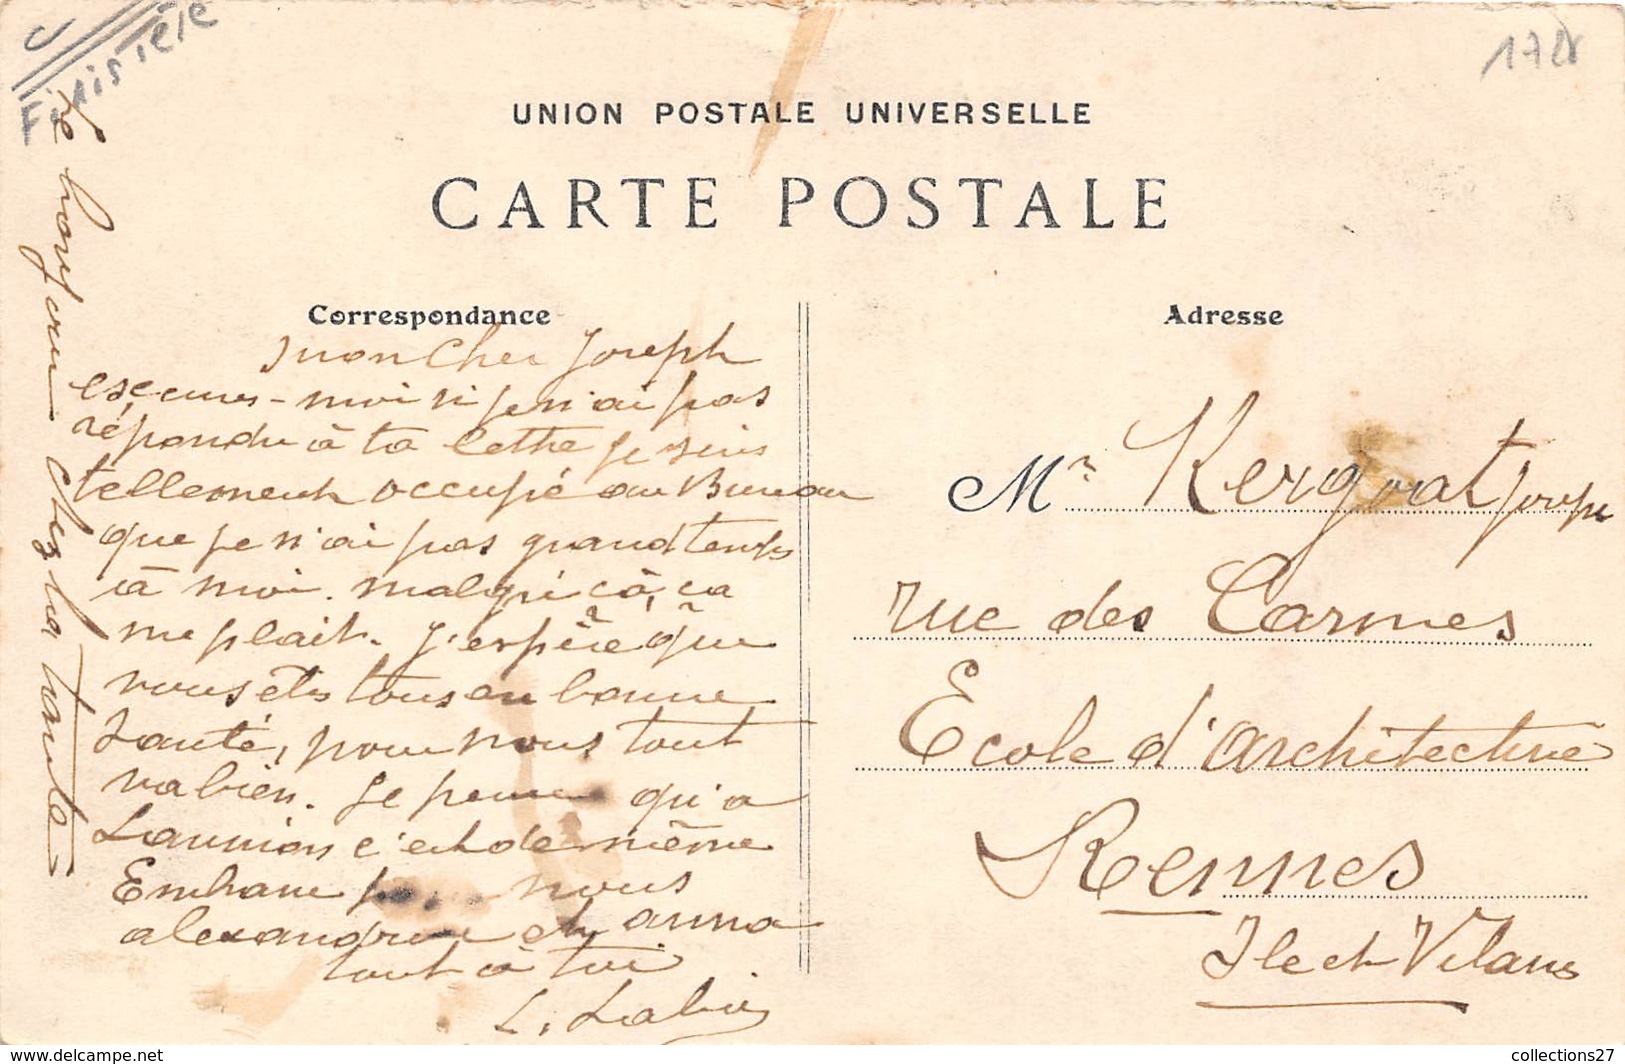 Finistère
178
UNION POSTALE UNIVERSELLE
CARTE POSTALE
Correspondance
mon Cher Joseph
escuses-moi si je n'ai pas
répondu à ta lettre je suis
tellement occupé au Bureau
que je n'ai pas grand temps
à moi. malgré cà, ca
me plait. J'espère que
vous êtes tous en bonne
Santé, pour nous tout
va bien. Je pense qu'a
Lannion c'est de même
Embrasse pour nous
alexandrine et anna
tout à toi
L.
Le bonjour chez ta tante
Adresse
Mr Kergoat Joseph
rue des Carmes
Ecole d'architecture
Rennes
Ile et Vilaine
collections27